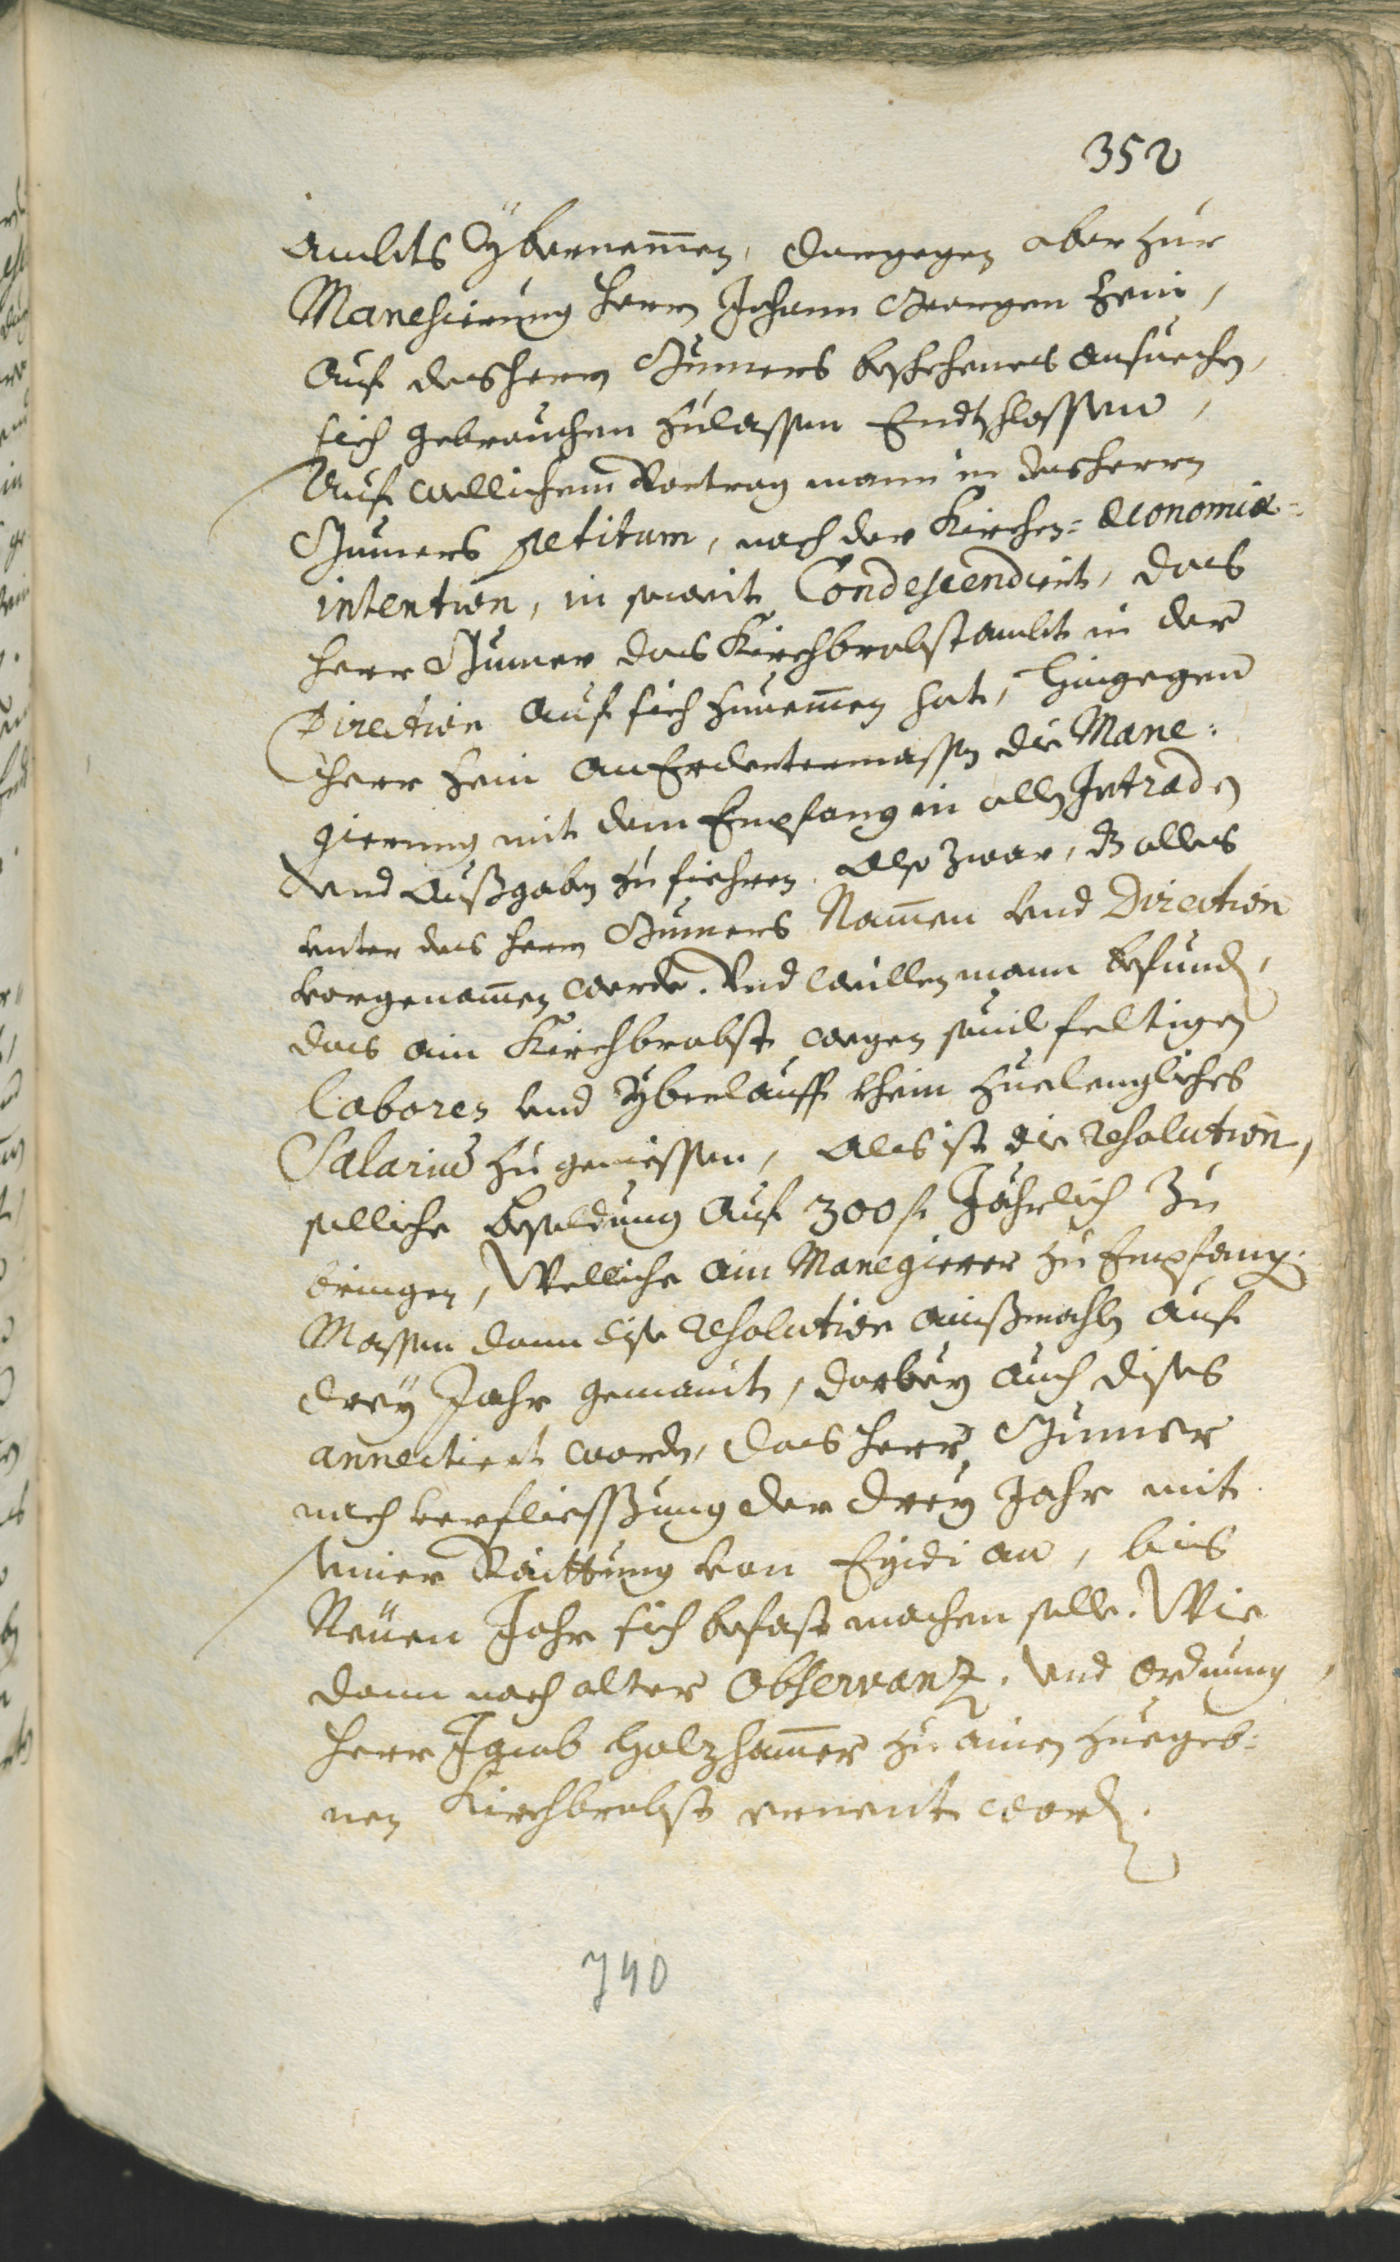 352
Ambts Ÿbernemen, dargegen aber zur
Manehierung Herrn Johann Georgen Hein,
Auf des Herrn Gumers beschehenes ansuechen,
sich gebrauchen zulassen Endtschlossen,
Auf wellichem Vortrag mann in des Herrn
Gumers petitum, nach der Kirchen= æconomiæ=
intention, in soweit Condescendiert, das
Herr Gumer das Kirchbrobstambt in der
Direction auf sich zunemen hat, Hingegen
Herr Hein anErdeutermassen die Mane=
gierung mit dem Empfang in allen Intraden
Vnd Außgaben zu fiehren. Also zwar, dz alles
vnter des Herrn Gumers Namen vnd Direction
vorgenomen werde. Vnd weillen mann befunden,
das ein Kirchbrobst wegen souil feltigen
labores vnd Ÿberlauff khein zuelengliches
Salarium zu geniessen, Als ist die resolution,
solliche besoldung auf 300 f. Jährlich zu
bringen, Welliche ain Manegierer zu Empfang.
Massen dann dise resolution ainßmahls auf
dreÿ Jahr gemaint, darbeÿ auch dises
annectiert worden, das Herr Gumer
nach verfliessßung der dreÿ Jahr mit
seiner Raittung von Egidi an, bis
Neüen Jahr sich befast machen solle. Wie
dann nach alter Observanz, vnd ordnung
Herr Jacob Holzhamer zu ainen zuegeb=
nen Kirchbrobst ernent worden.
740